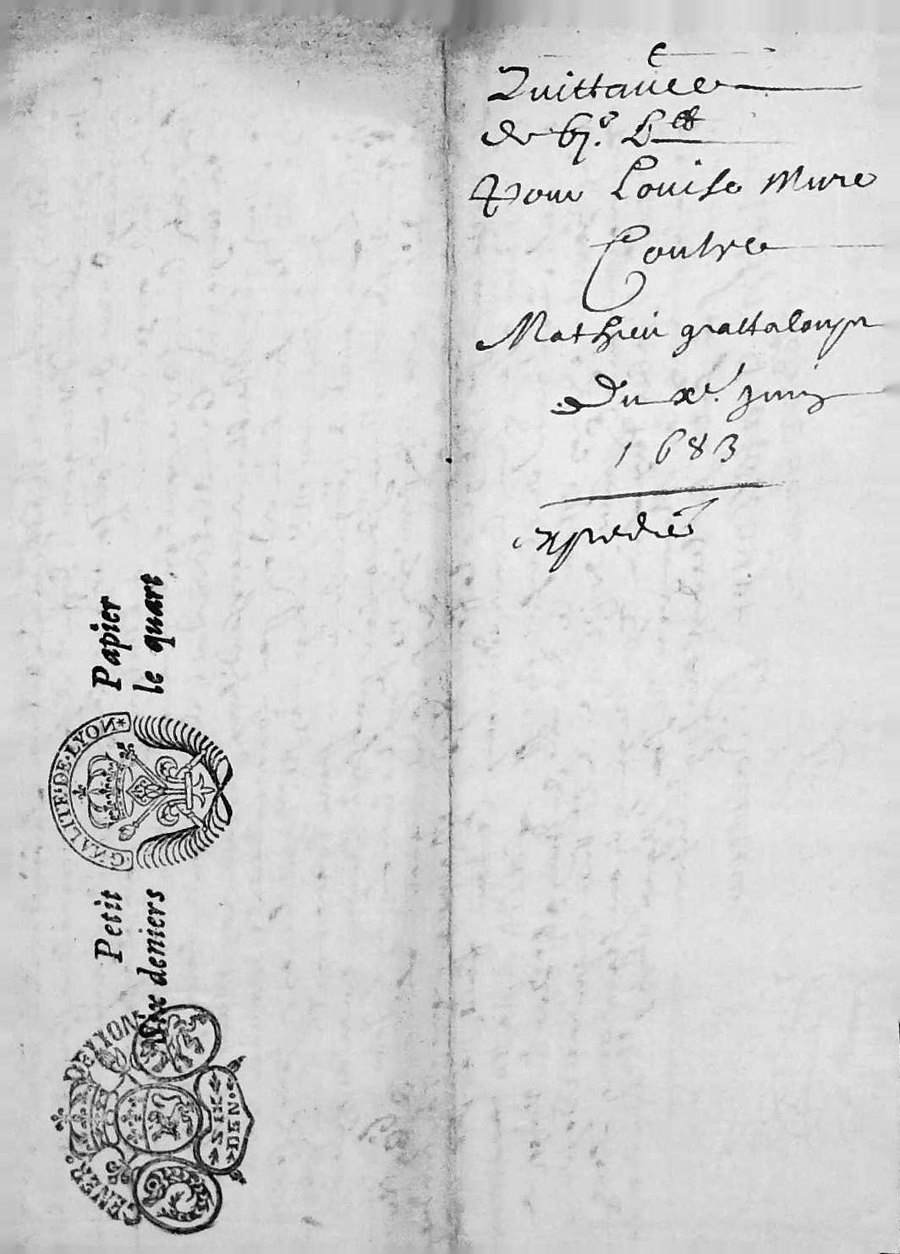 Quittance
de
Pour Louise Mure
Contre
Mathieu grattaloup
Du xe. juin
1683
expedié
Papier
le quart
GNALITE·DE·LYON*
Petit
six deniers
GENER. DE LYON
SIX
DEN.